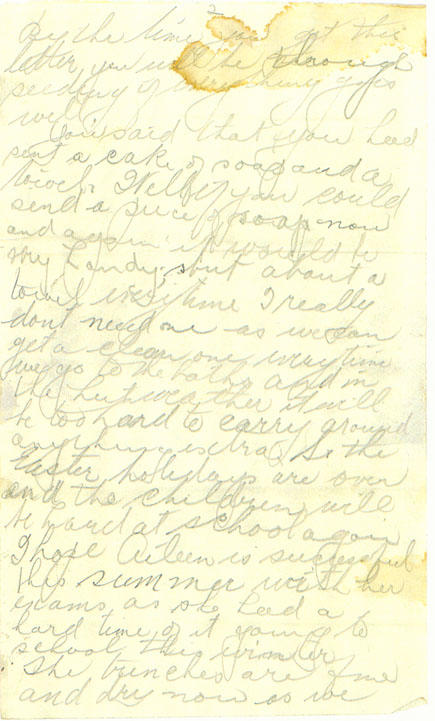 2
By the time you get this
letter you will be through
seeding if everything goes
well.
You said that you had
sent a cake of soap and a
towel. Well if you could
send a piece of soap now
and again it would be
very handy, but about a
towel everytime I really
dont need one as we can
get a clean one everytime
we go to the baths and in
the hot weather it will
be too hard to carry around
anything extra. So the
Easter holidays are over
and the children will
be hard at school again
I hope Aileen is successful
this summer with her
exams as she had a
hard time of it going to
school this winter.
The trenches are fine
and dry now as we